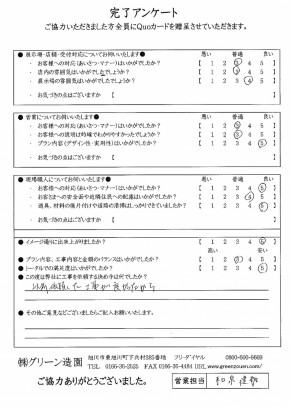 完了アンケート
ご協力いただきました方全員にQuoカードを贈呈させていただきます。
● 展示場・店舗・受付対応についてお伺いいたします● 悪い 普通 良い
・ お客様への対応(あいさつ・マナー)はいかがでしたか? 【 1 2 3 4 5 】
・ 店内の雰囲気はいかがでしたでしょうか? 【 1 2 3 4 5 】
・ 展示場の雰囲気はいかがでしたか? 【 1 2 3 4 5 】
・ お気づきの点はございますか 【
● 営業についてお伺いいたします● 悪い 普通 良い
・ お客様への対応(あいさつ・マナー)はいかがでしたか? 【 1 2 3 4 5 】
・ お客様への説明は明確でわかりやすかったでしょうか? 【 1 2 3 4 5 】
・ プラン内容(デザイン性・実用性)はいかがでしたか? 【 1 2 3 4 5 】
・ お気づきの点はございますか 【
● 現場職人についてお伺いいたします● 悪い 普通 良い
・ お客様への対応(あいさつ・マナー)はいかがでしたか? 【 1 2 3 4 5 】
・ お客さまへの安全面や近隣住民への配慮はいかがでしたか? 【 1 2 3 4 5 】
・ 道具、材料の後片付けや道路の清掃はしっかりできていましたか? 【 1 2 3 4 5 】
・ お気づきの点はございますか 【
● イメージ通りに出来上がりましたか? 【 1 2 3 4 5 】
高い 安い
● プラン内容、工事内容と金額のバランスはいかがでしたか? 【 1 2 3 4 5 】
● トータルでの満足度はいかがでしたか? 【 1 2 3 4 5 】
● この度は弊社に工事を依頼する決め手は何でしたか?
以前依頼した工事が良かったから
● その他ご意見などございましたらご記入お願いいたします。
㈱グリーン造園
旭川市東旭川町下兵村385番地 フリーダイヤル 0800-800-6669
TEL 0166-36-2525 FAX 0166-36-4484 URL www.greenzouen.com/
ご協力ありがとうございました。
営業担当